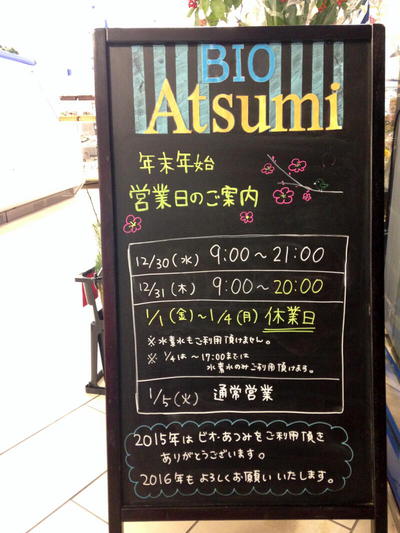 BIO
Atsumi
年末年始
営業日のご案内
12/30(水) 9:00~21:00
12/31(木) 9:00~20:00
1/1(金)~1/4(月) 休業日
※水素水もご利用頂けません。
※ 1/4は~17:00までは
水素水のみご利用頂けます。
1/5(火) 通常営業
2015年はビオ・あつみをご利用頂き
ありがとうございます。
2016年もよろしくお願いいたします。